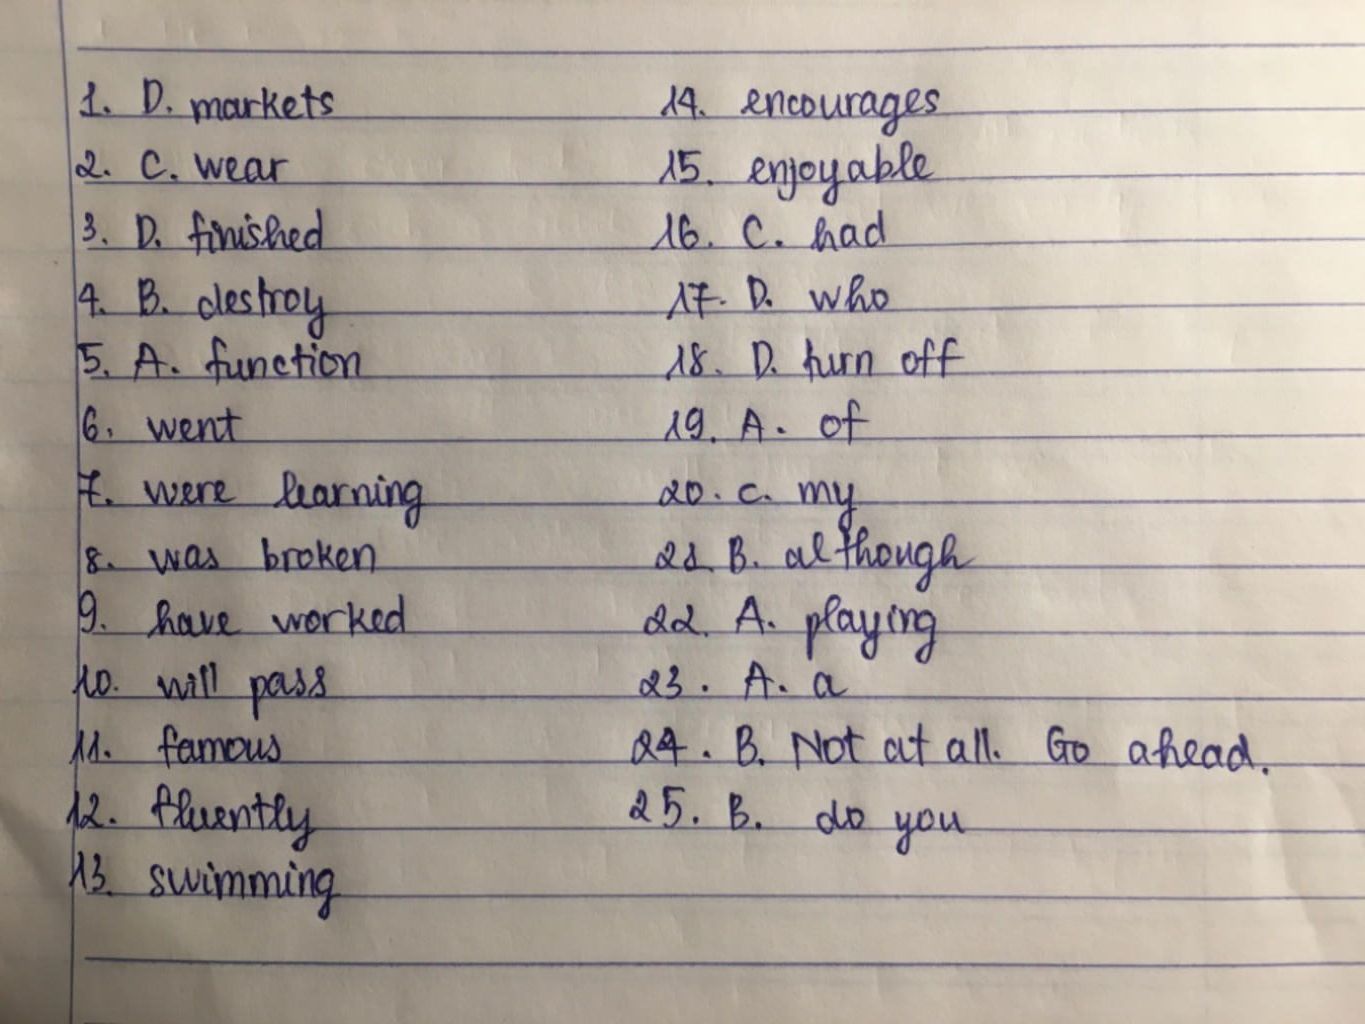 1. D. markets
2. C. wear
3. D. finished
4. B. destroy
5. A. function
6. went
7. were learning
8. was broken
9. have worked
10. will pass
11. famous
12. fluently
13. swimming
14. encourages
15. enjoyable
16. C. had
17. D. who
18. D. turn off
19. A. of
20. C. my
21. B. although
22. A. playing
23. A. a
24. B. Not at all. Go ahead.
25. B. do you